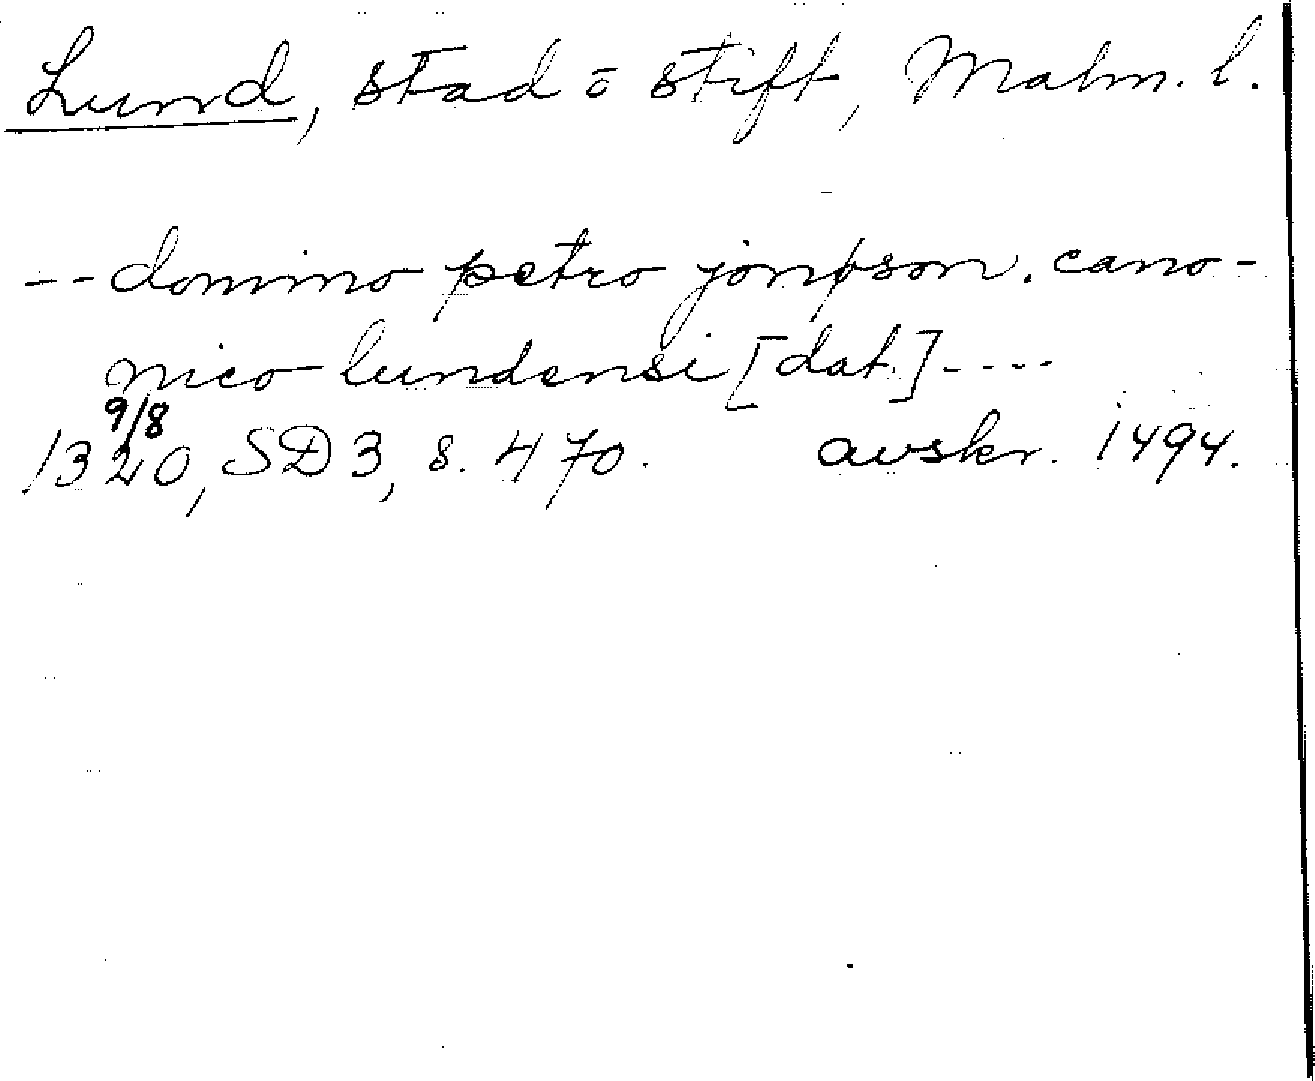 Lund, stad o stift, Malm. l.
-- domino petro jonpson. cano-
nico lundensi [dat.] ----
9/8
1320, SD 3, s. 470. avskr. 1494.